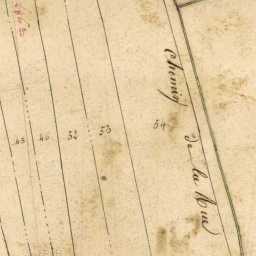 Chemin de la Rue
45 46 52 53 54